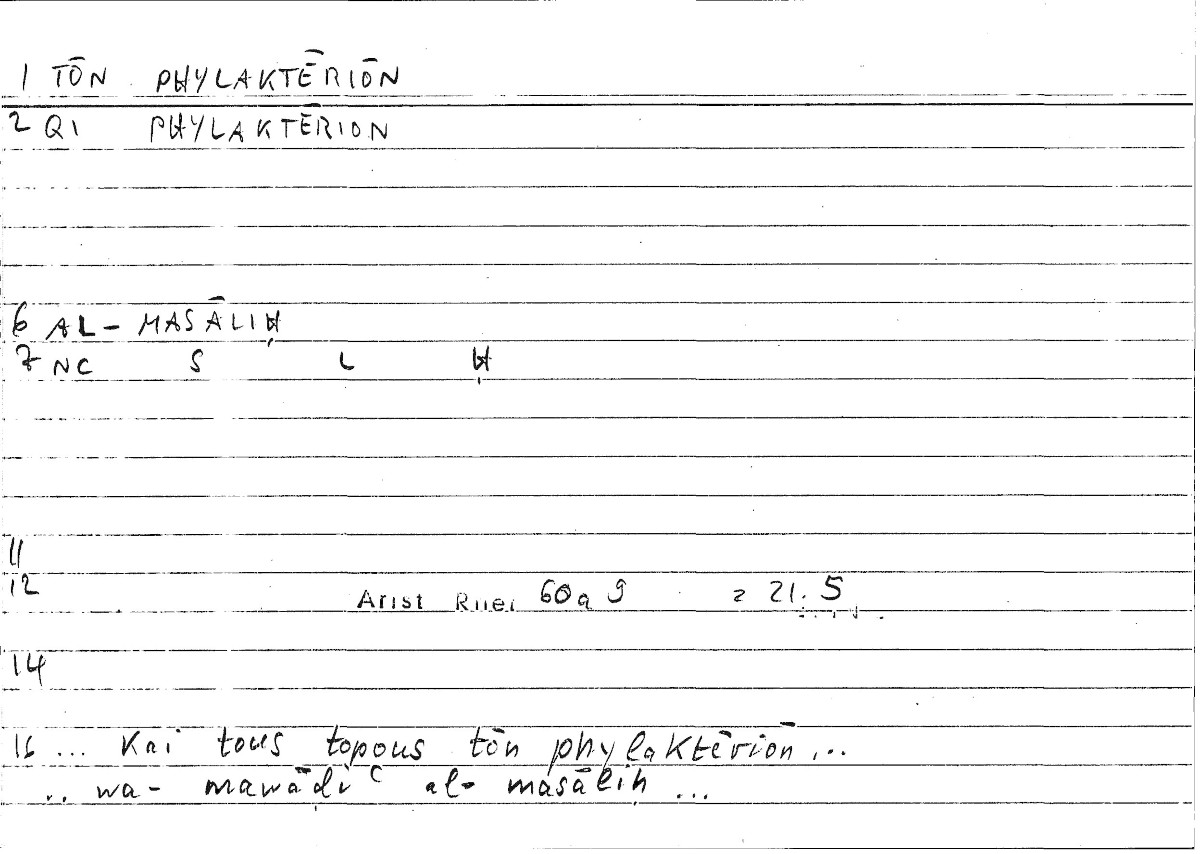 1 TŌN PHYLAKTĒRIŌN
2 Q1 PHYLAKTĒRION
6 AL-MASĀLIḤ
7 NC S L Ḥ
11
12 Arist Rhet 60a 9 = 21.5
14
16 ... Kai tous topous tōn phylaktēriōn ...
.. wa- mawāḍiʿ al- masāliḥ ...